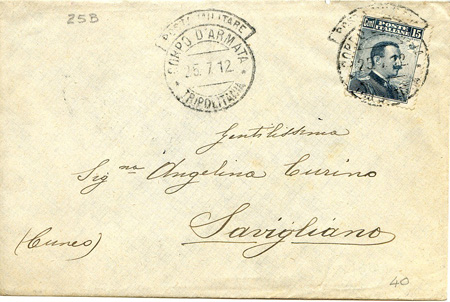 25B
POSTA MILITARE
CORPO D'ARMATA
25.7.12
* TRIPOLITANIA *
Cent. POSTE ITALIANE 15
Gentilissima
Sig.na Angelina Curino
Savigliano
(Cuneo)
40